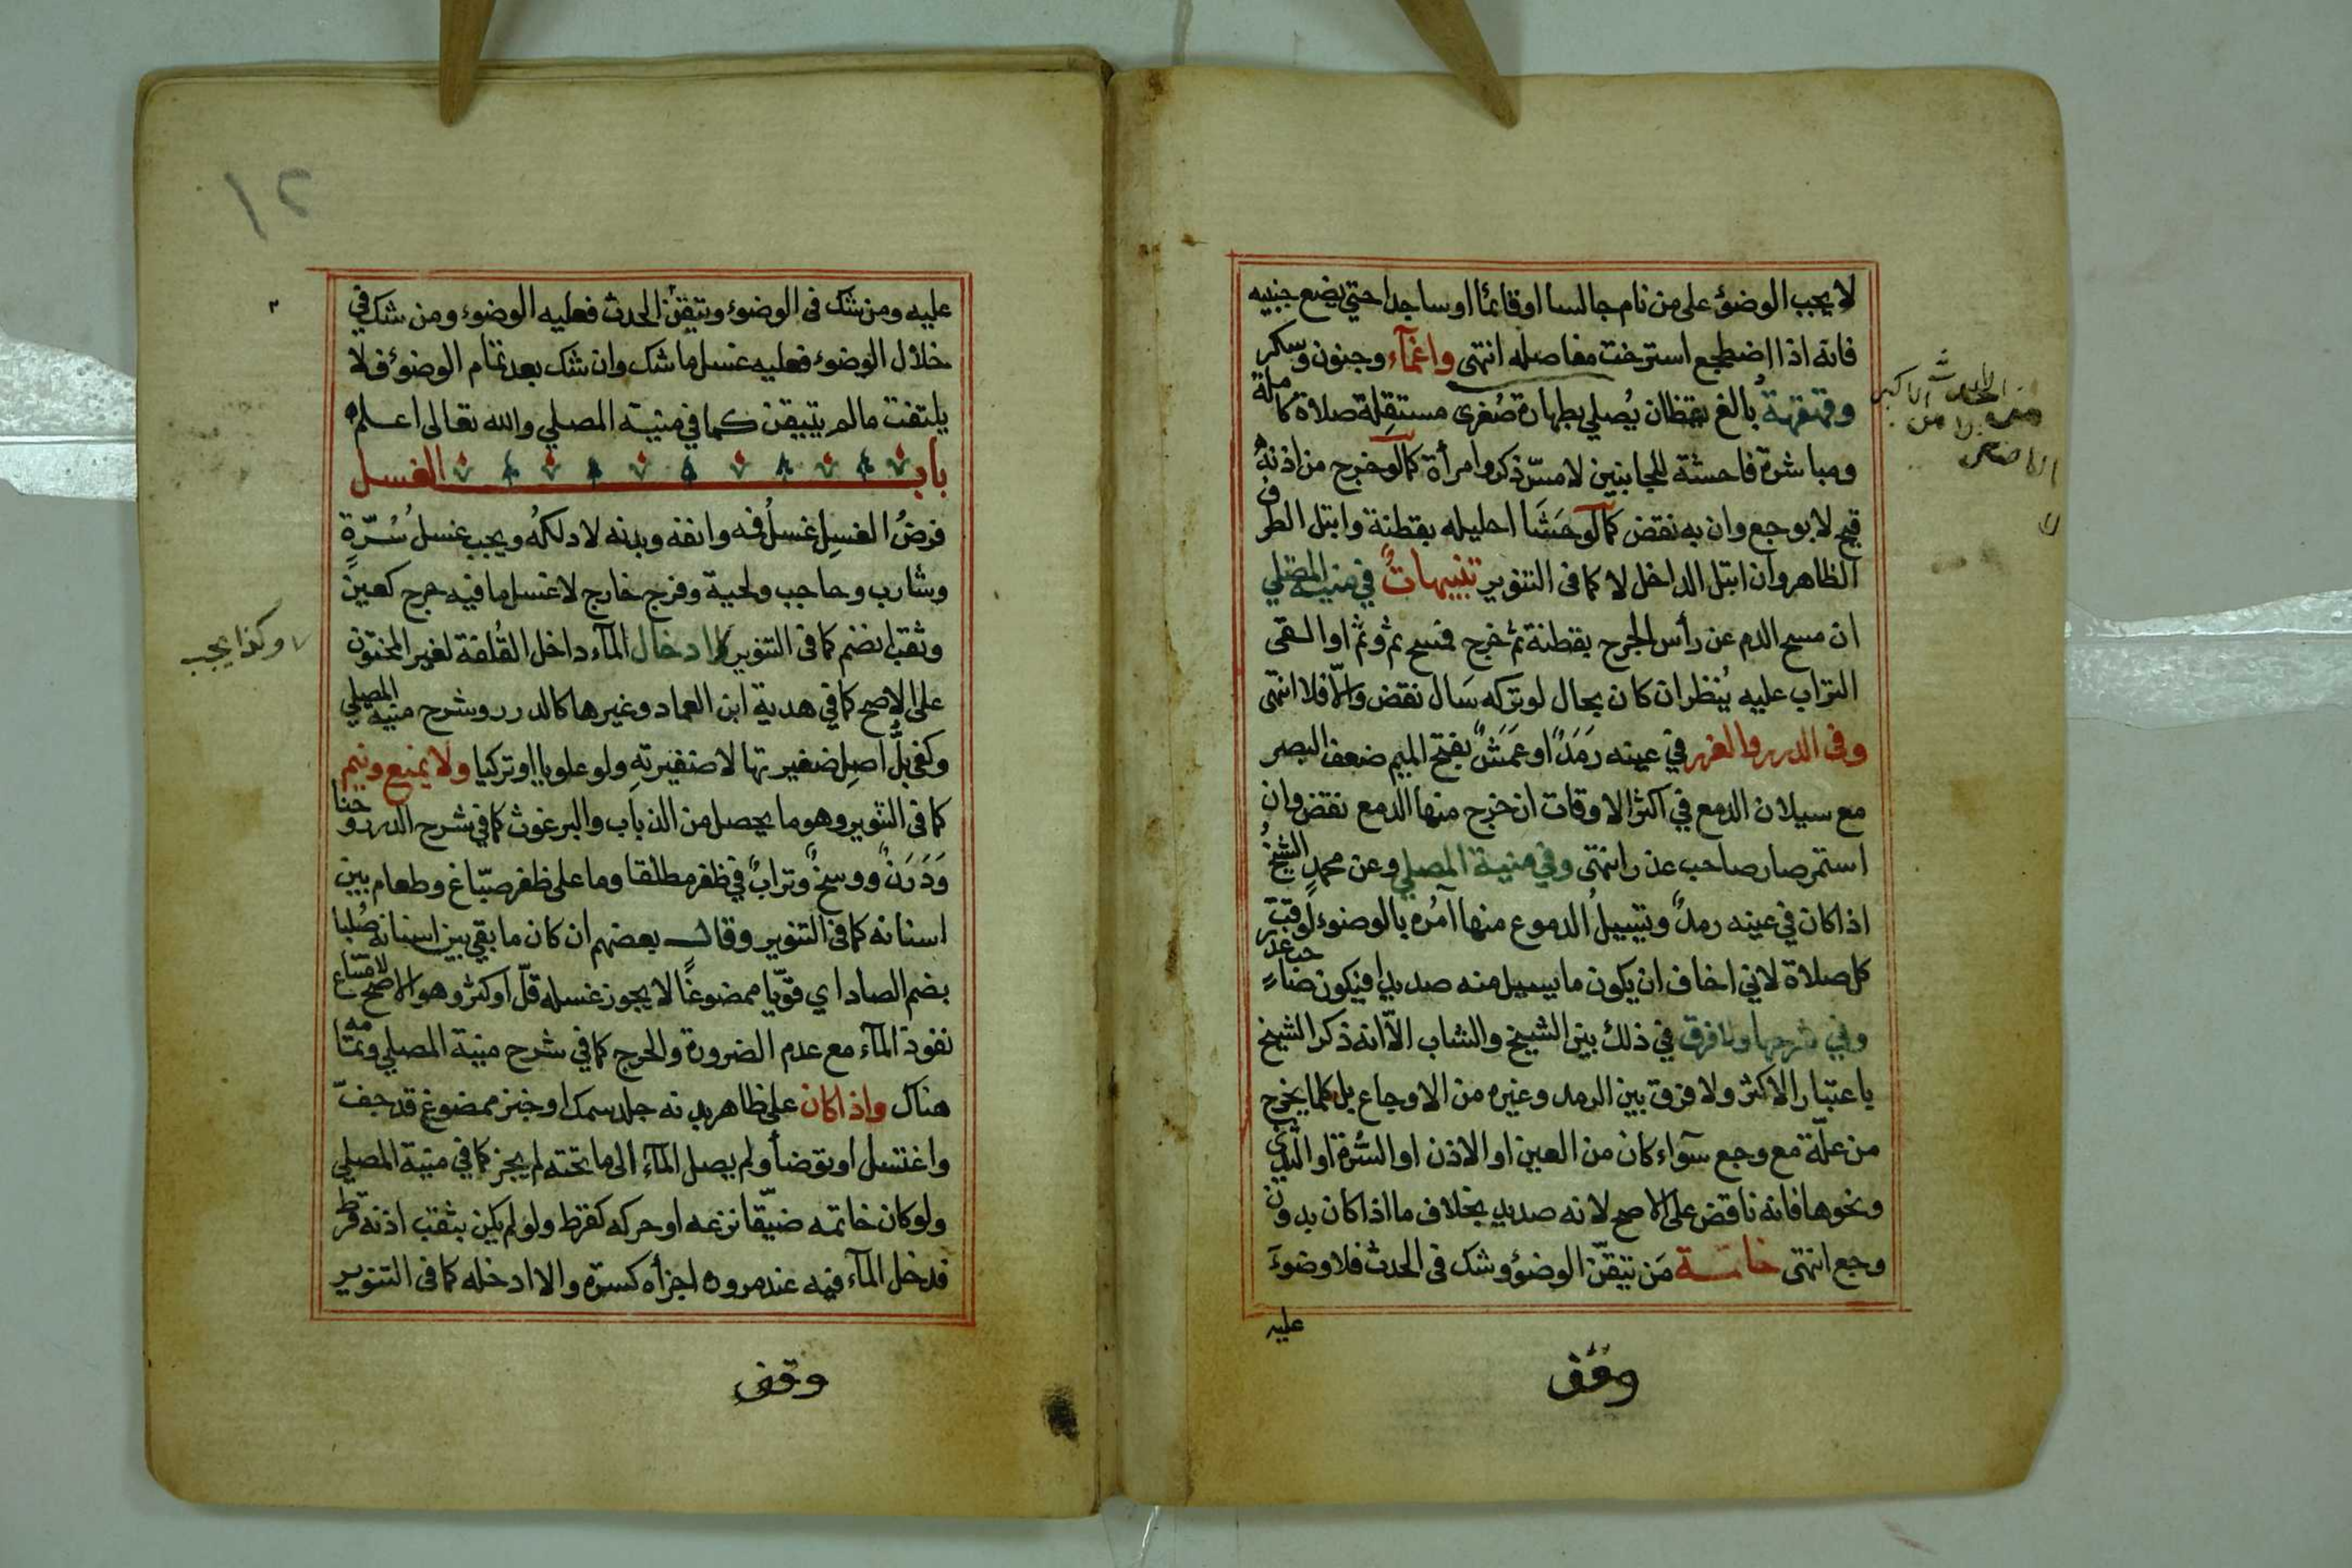 لا يجب الوضؤ على من نام جالسا او قائما او ساجدا حتي يضع جنبيه
فانه اذا اضطجع استرخت مفاصله انتهى واغمآء وجنون وسكر
وقهقهة بالغ يقظان يُصلي بطهارة صُغرى مستقلة صلاة كاملة
ومباشرة فاحشة للجانبين لا مسّ ذكر وامرأة كما لو خرج من اذنه
قيح لا بوجع وان به نقض كما لو حَشَا احليله بقطنة وابتل الطرف
الظاهر وان ابتل الداخل لا كما فى التنوير تنبيهاتٌ في منية المصلي
ان مسح الدم عن رأس الجرح بقطنة ثم خرج فمسح ثم وثم او القى
التراب عليه يُنظر ان كان بحال لو تركه سَال نقض والّا فلا انتهى
وفى الدرر والغرر في عينه رَمَدٌ او عَمَشٌ بفتح الميم ضعف البصر
مع سيلان الدمع في اكثر الاوقات ان خرج منها الدمع نقض وان
استمر صار صاحب عذر انتهى وفي منية المصلي وعن محمدٍ الشيخُ
اذا كان في عينه رمدٌ وتسيلُ الدموع منها آمُره بالوضوء لوقت
كل صلاة لاني اخاف ان يكون ما يسيل منه صديدا فيكون صاحب عذر
وفي شرحها ولا فرق في ذلك بين الشيخ والشاب الّا انه ذكر الشيخ
باعتبار الاكثر ولا فرق بين الرمد وغيره من الاوجاع بل كلما يخرج
من علّة مع وجع سوآء كان من العين او الاذن او السُّرة او الثدي
ونحوها فانه ناقض على الاصح لانه صديد بخلاف ما اذا كان بدون
وجع انتهى خاتمة مَن تيقّن الوضؤ وشك فى الحدث فلا وضوءَ
عليه
وقف
عليه ومن شك فى الوضوء وتيقن الحدث فعليه الوضوء ومن شك في
خلال الوضوء فعليه غسل ما شك وان شك بعد تمام الوضوء فلا
يلتفت ما لم يتيقن كما في منية المصلي والله تعالى اعلم
باب الغسل
فرضُ الغسلِ غسلُ فمه وانفه وبدنه لا دلكهُ ويجب غسلُ سُرّةٍ
وشارب وحاجب ولحية وفرج خارج لا غسل ما فيه حرج كعين
وثقب انضم كما فى التنوير ادخال المآء داخل القُلفة لغير المختون
وكذا يجب
على الاصح كما في هدية ابن العماد وغيرها كالدرر وشرح منية المصلي
وكفى بلُّ اصلِ ضفيرتها لا ضفيرتهِ ولو علويا او تركيا ولا يمنع ونيم
كما فى التنوير وهو ما يحصل من الذباب والبرغوث كما في شرح الدرر وحنا
وَدَرَنٌ ووسخٌ وترابٌ في ظفر مطلقا وما على ظفر صبّاغ وطعام بين
اسنانه كما فى التنوير وقال بعضهم ان كان ما بقي بين اسنانه صُلبا
بضم الصاد اي قوّيا ممضوغًا لا يجوز غسله قلّ او كثر وهو الاصح لامتناع
نفوذ المآء مع عدم الضرورة والحرج كما في شرح منية المصلي وتمامه
هناك واذا كان على ظاهر بدنه جلد سمك او خبز ممضوغ قد جفّ
واغتسل او توضأ ولم يصل المآء الى ما تحته لم يجز كما في منية المصلي
ولو كان خاتمه ضيّقا نزعه او حركه كقرط ولو لم يكن بثقب اذنه قرط
فدخل المآء فيه عند مروره اجزأه كسرّة والا ادخله كما فى التنوير
وقف
١٢